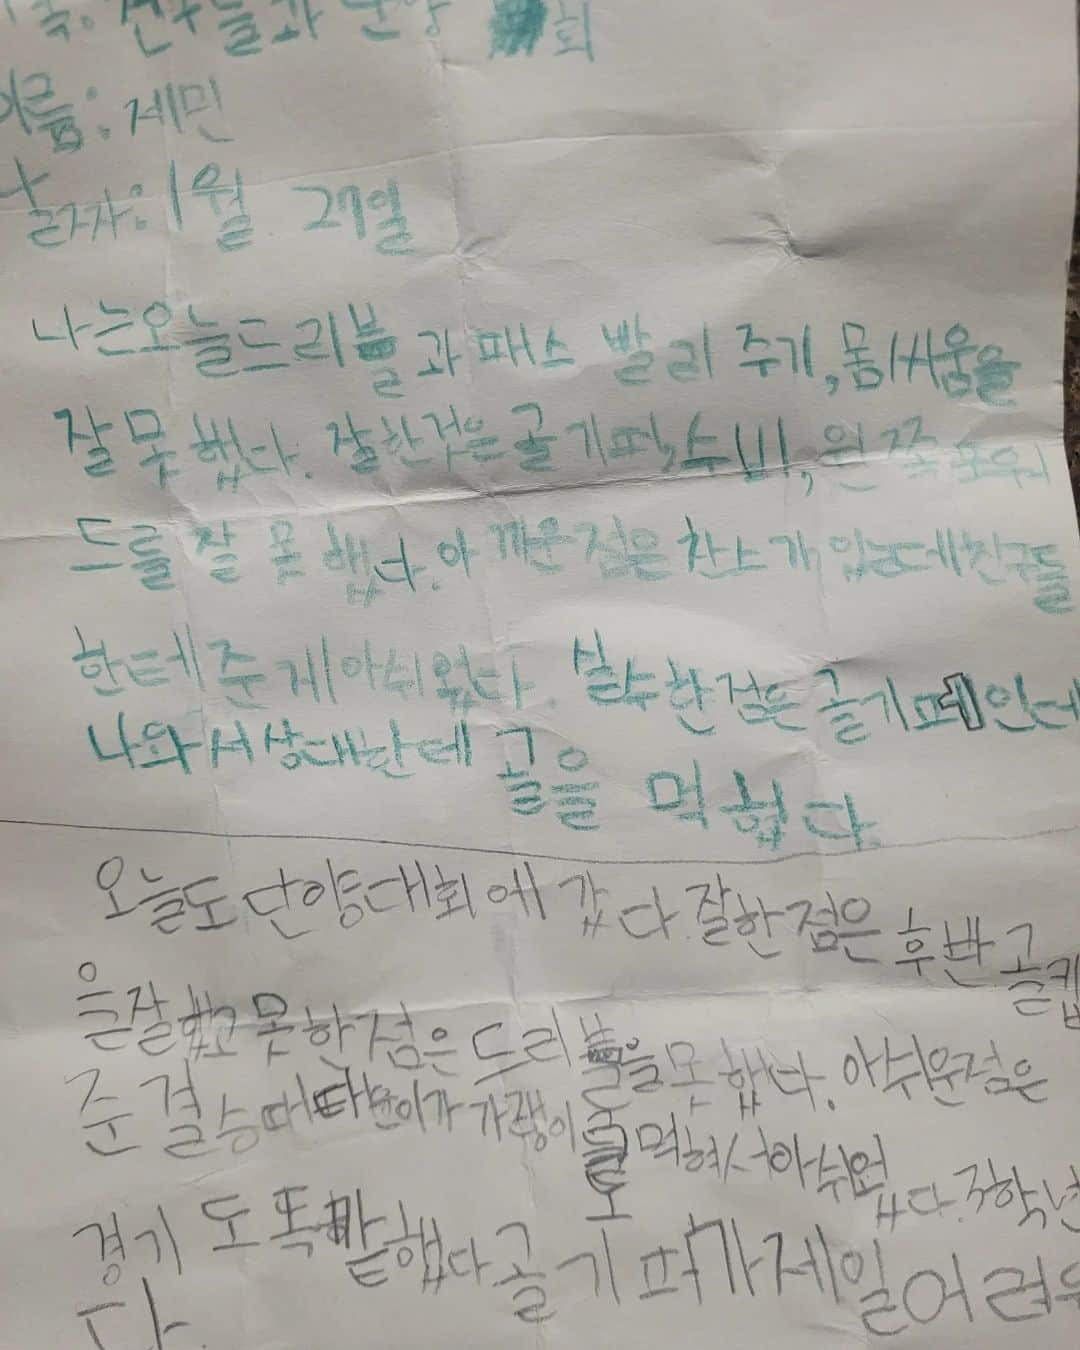 친구들과 단양 회
이름: 제민
날자: 1월 27일
나는오늘드리블과패스 빨리 주기, 몸싸움을
잘못했다. 잘한것은골기퍼,수비, 왼쪽
드를 잘 못했다. 아까운점은찬스가 있는데친구들
한테준게아쉬웠다. 실수한점은골기페인데
나와서상대한테 골을 먹혔다.
오늘도단양대회에 갔다.잘한점은 후반골킵
은잘했고못한점은드리블을못했다. 아쉬운점은
준결승때 가랭이 먹혀서아쉬웠다.저학년
경기도똑같했다.골기퍼가제일어려우
다